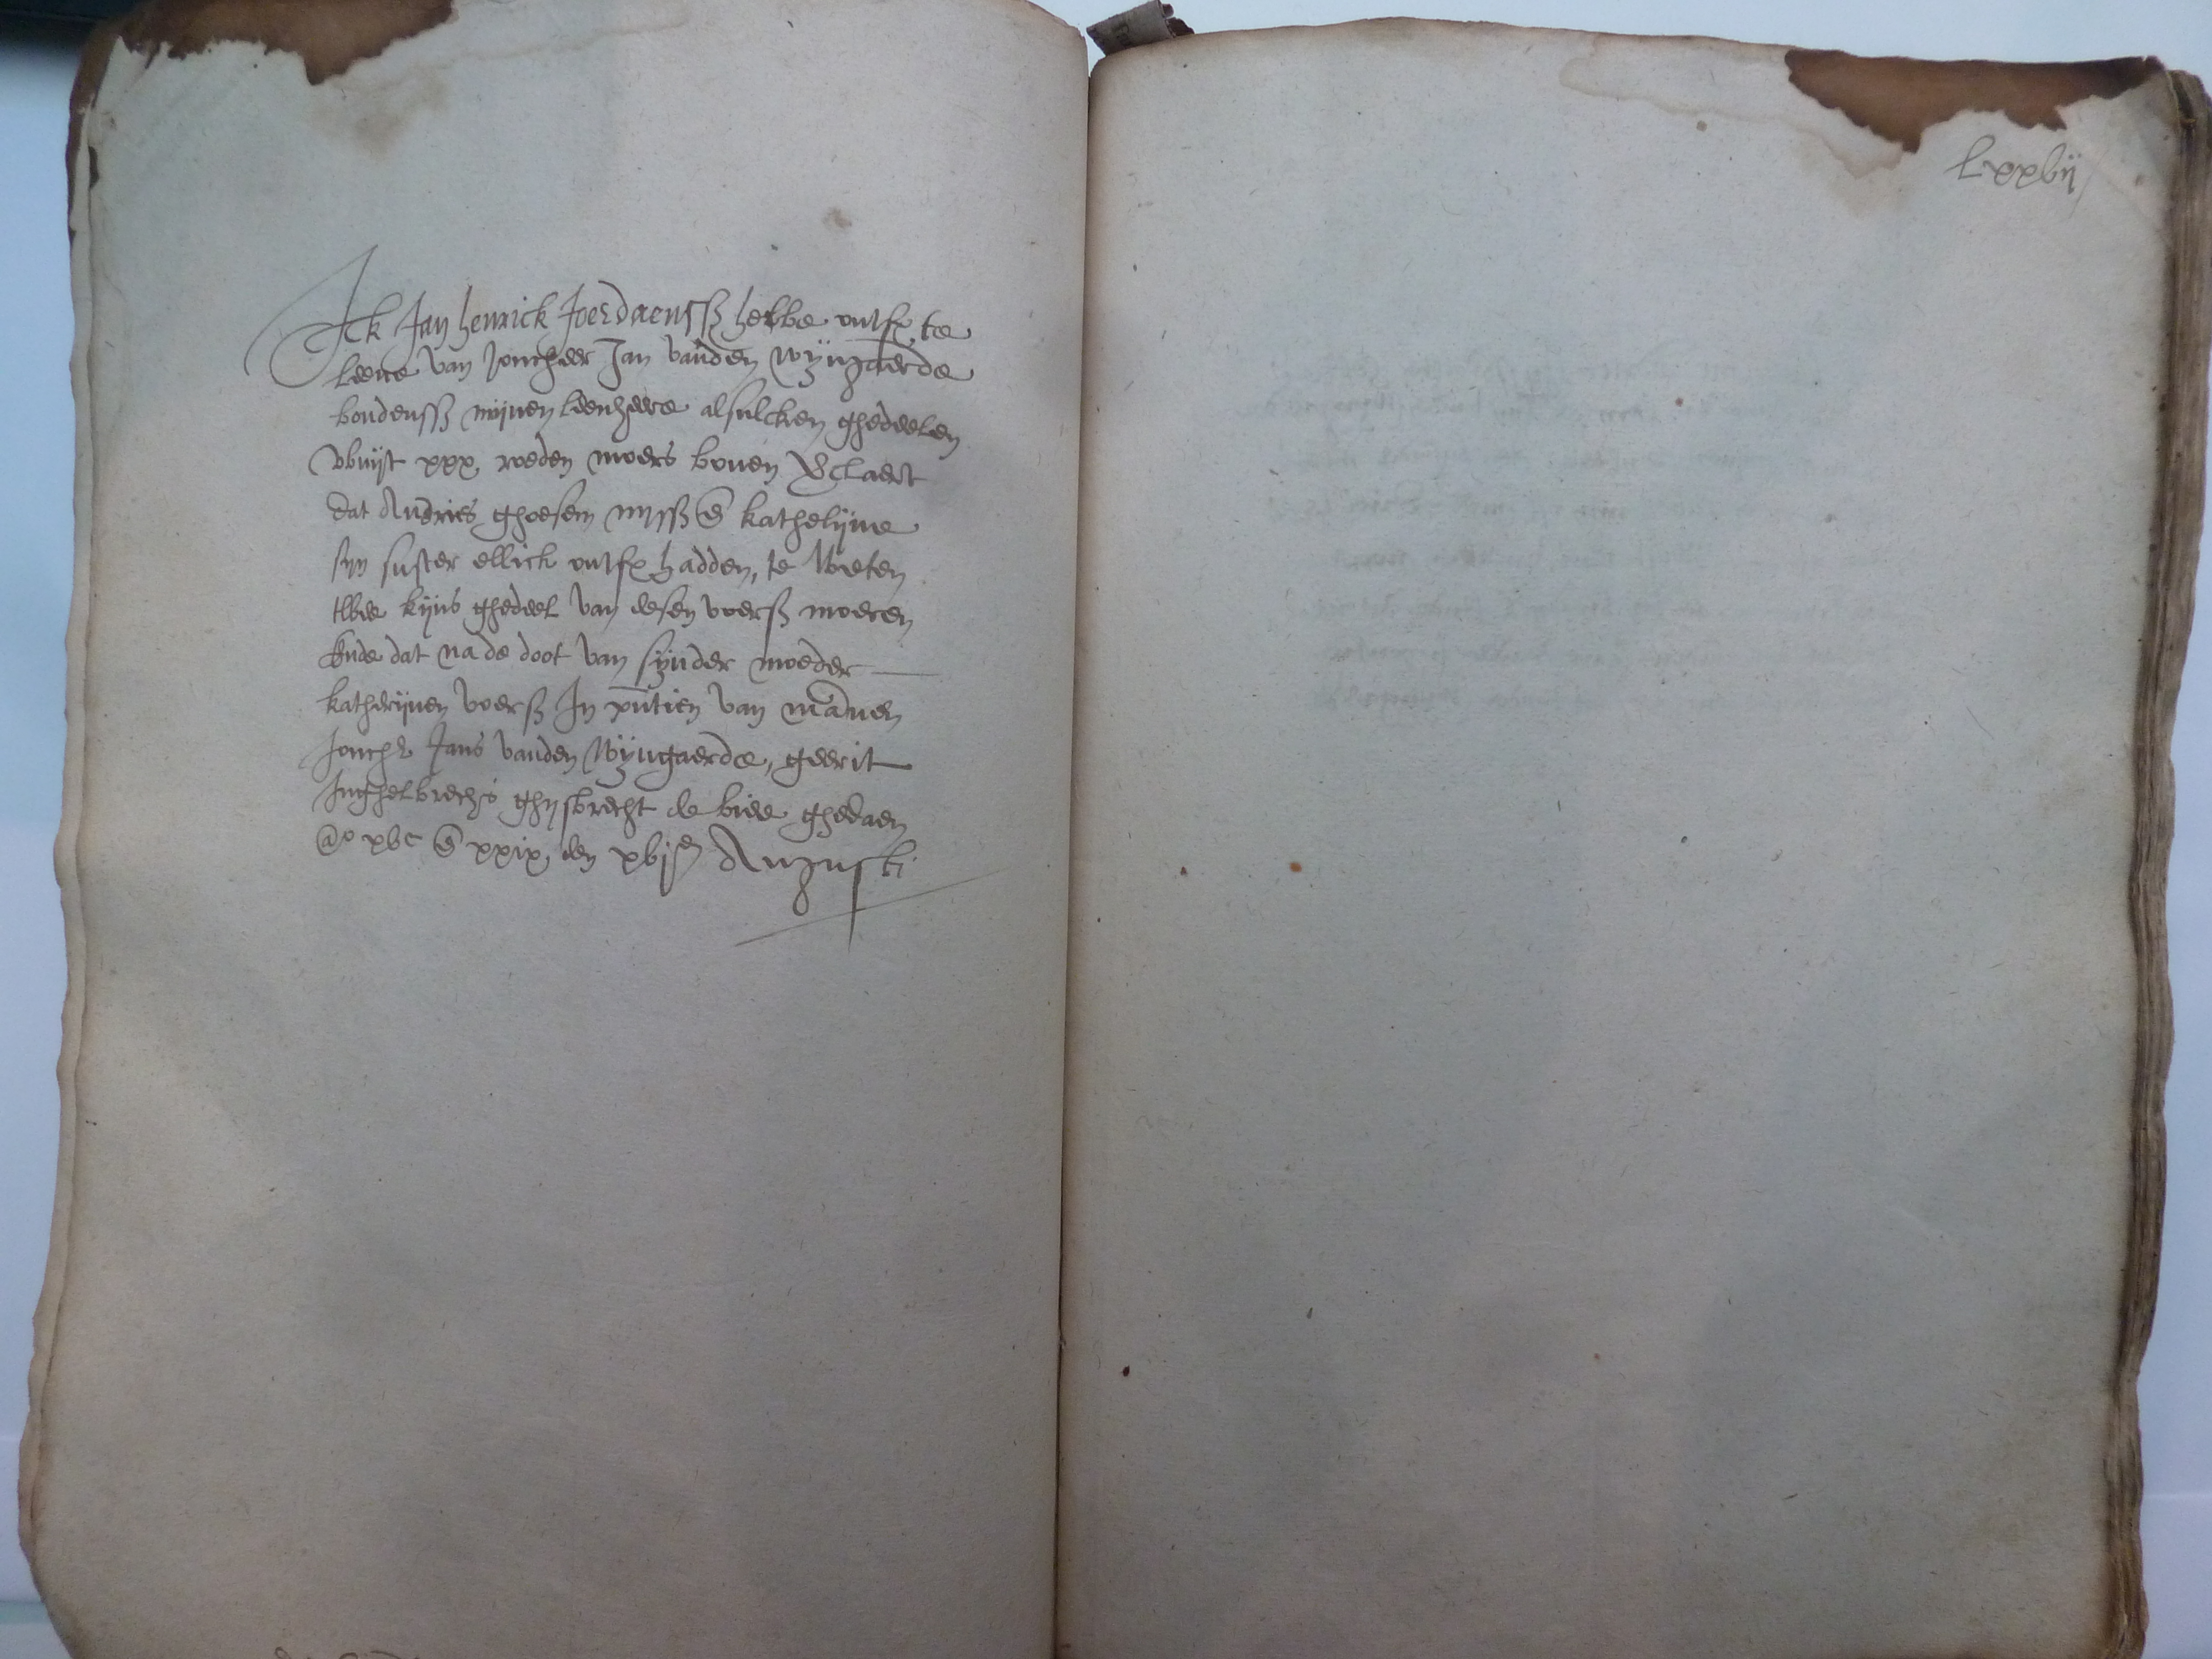 Ick Jan henrick Joerdaenssß hebbe ontfx te
leene van Joncheer Jan vanden wyngaerde
boudenssß mijnen leenheere alsulcken ghedeelen
vvuijt xxx roeden moers boven verclaert
dat Andries ghoesem mijsß en kathelijne
syn suster ellick ontfx hadden, te weten
twee kijns ghedeel van desen voersß moeren
Ende dat na de doot van sijnder moeder
katherijnen voersß In pntien van mannen
Jonchr Jans vanden wijngaerde, geerit
Inghelbrechs ghysbrecht de bie ghedaen
ao xvc en xxix, den xvjen Augusti
Lxxvij